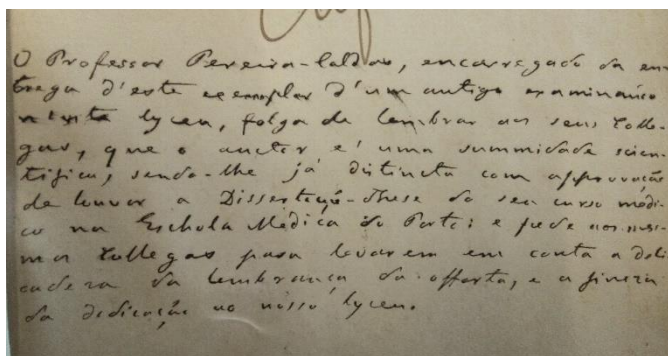 O Professor Pereira-Caldas, encarregado da en-
trega d'este exemplar d'um antigo examinando
n'este lyceu, folga de lembrar aos seus Colle-
gas, que o auctor é uma summidade scien-
tifica, sendo-lhe já distincta com approvação
de louvor a Dissertação-These do seu curso médi-
co na Eschola Médica do Porto: e pede aos mes-
mos Collegas para levarem em conta a deli-
cadeza da lembrança da offerta, e a fineza
da dedicação ao nosso lyceu.